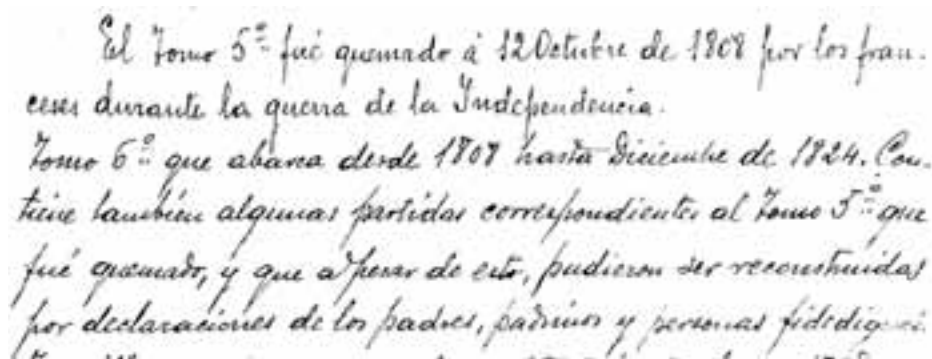 El Tomo 5º fué quemado á 12 Octubre de 1808 por los fran-
ceses durante la guerra de la Independencia.
Tomo 6º que abarca desde 1808 hasta Diciembre de 1824. Con-
tiene también algunas partidas correspondientes al Tomo 5º que
fué quemado, y que a pesar de esto, pudieron ser reconstruidas
por declaraciones de los padres, padrinos y personas fidedignas.